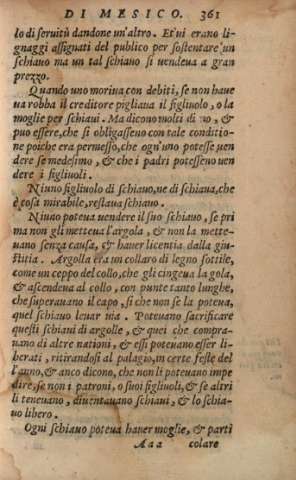 DI MESICO. 361
lo di seruitù dandone un'altro. Et ui erano li-
gnaggi assignati del publico per sostentare un
schiauo ma un tal schiauo si uendeua a gran
prezzo.
Quando uno moriua con debiti, se non haue
ua robba il creditore pigliaua il figliuolo, o la
moglie per schiaui. Ma dicono molti di no, &
puo essere, che si obligasseno con tale conditio-
ne poiche era permesso, che ogn'uno potesse uen
dere se medesimo, & che i padri potesseno uen
dere i figliuoli.
Niuno figliuolo di schiauo, ne di schiaua, che
è cosa mirabile, restaua schiauo.
Niuno poteua uendere il suo schiauo, se pri
ma non gli metteua l'argola, & non la mette-
uano senza causa, & hauer licentia dalla giu-
stitia. Argolla era un collaro di legno sottile,
come un ceppo del collo, che gli cingeua la gola,
& ascendeua al collo, con punte tanto lunghe,
che superauano il capo, sì che non se la poteua,
quel schiauo leuar uia. Poteuano sacrificare
questi schiaui di argolle, & quei che compra-
uano di altre nationi, & essi poteuano esser li-
berati, ritirandosi al palagio, in certe feste del
l'anno, & anco dicono, che non li poteuano impe
dire, se non i patroni, o suoi figliuoli, & se altri
li teneuano, diuentauano schiaui, & lo schia-
uo libero.
Ogni schiauo poteua hauer moglie, & parti
Aaa colare